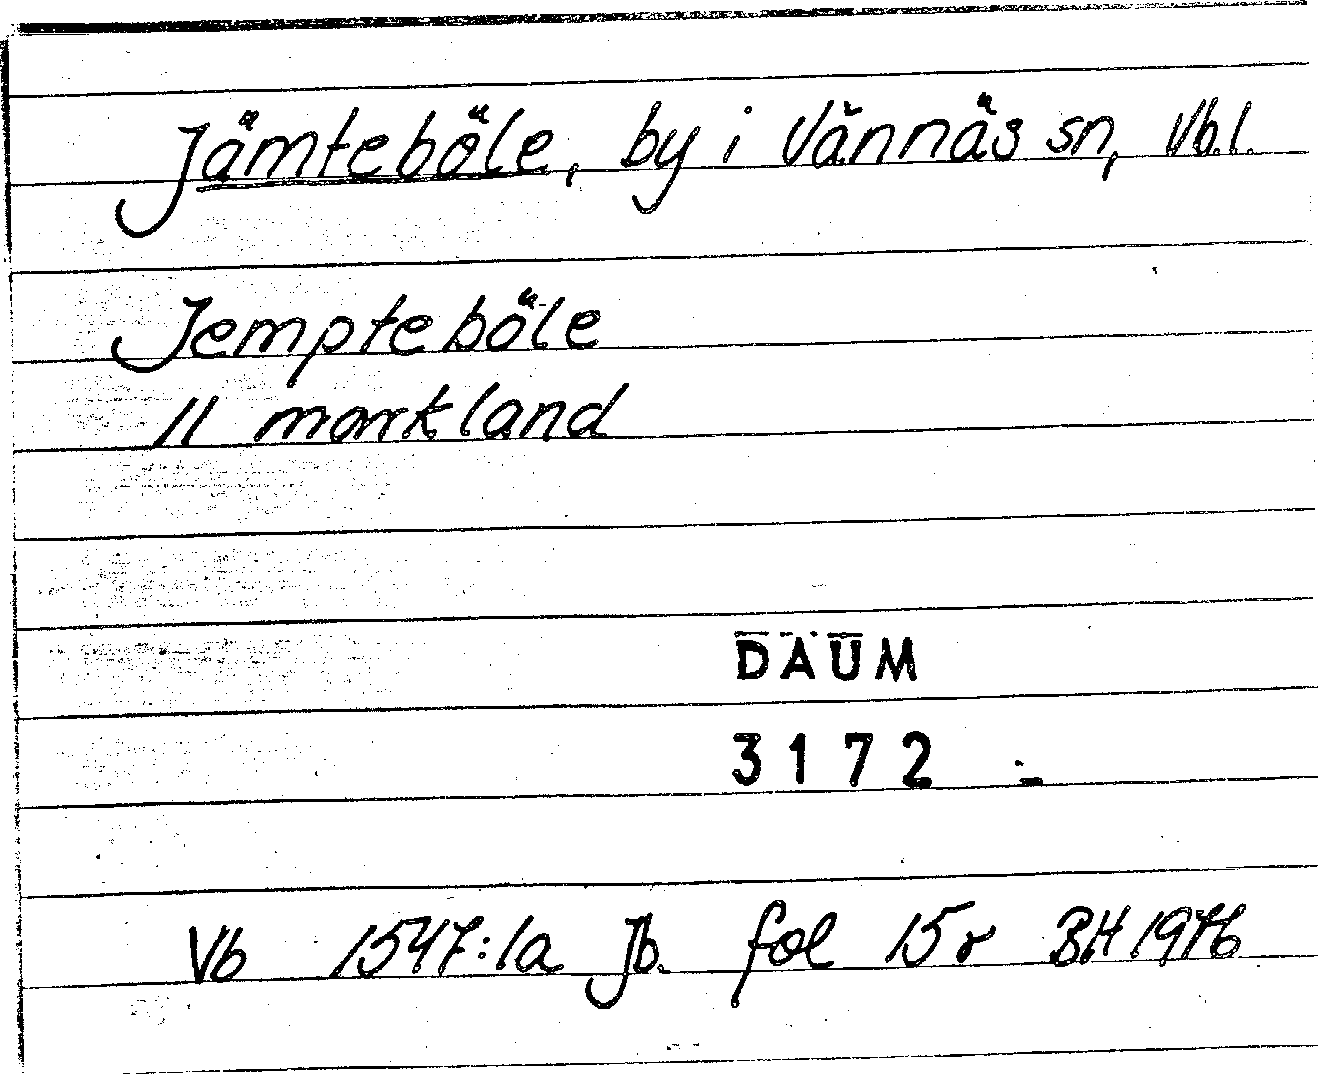 Jämteböle, by i Vännäs sn, Vb.l.
Jempteböle
11 markland
DAUM
3172
Vb 1547:1a Jb. fol 15r BH 1976